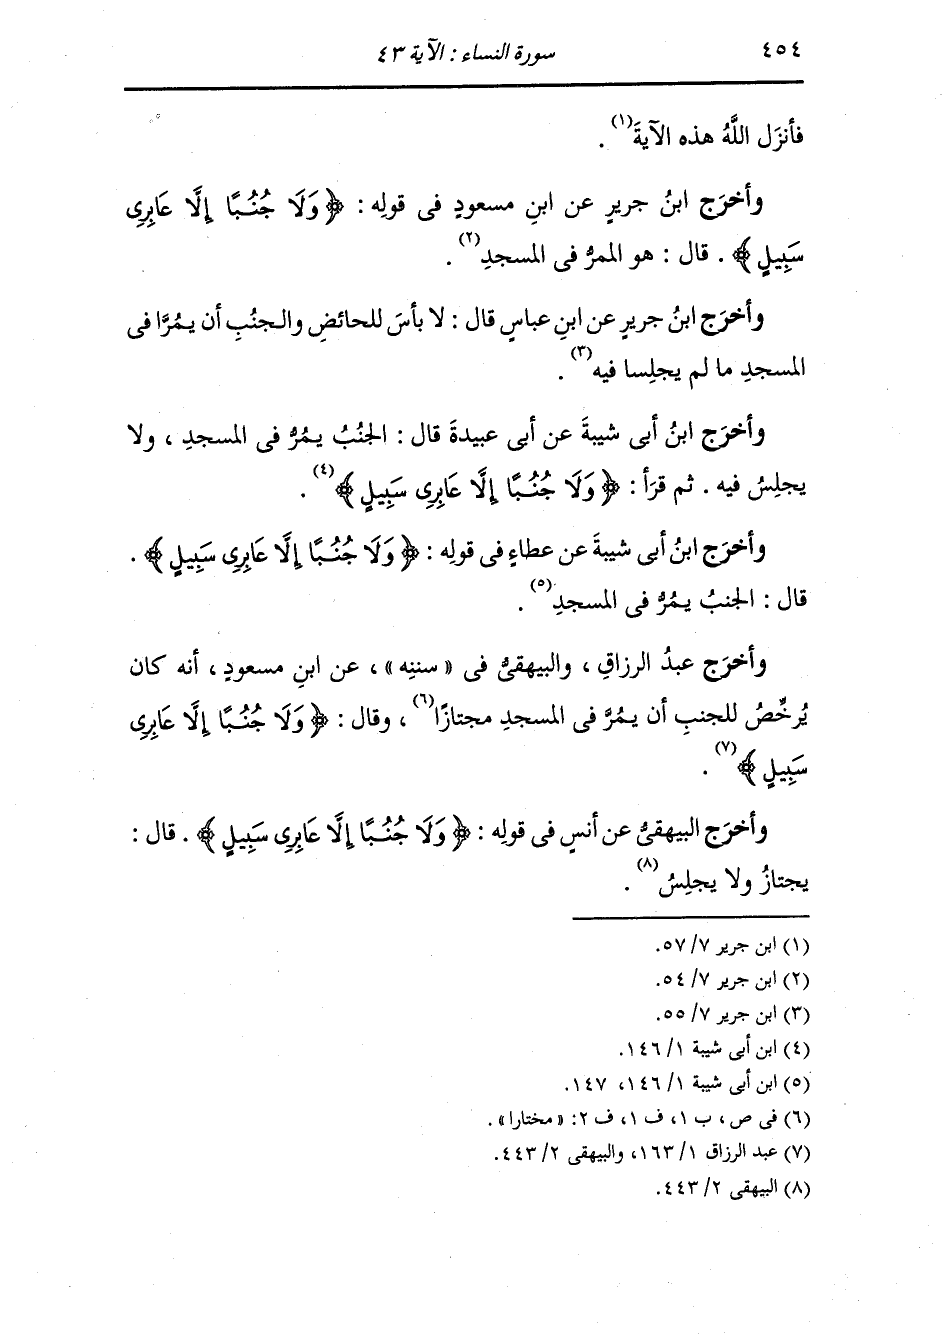 ٤٥٤
سورة النساء : الآية ٤٣
فأنزَل اللَّهُ هذه الآيةَ(١) .
وأخرَج ابنُ جريرٍ عن ابنِ مسعودٍ فى قولِه : ﴿وَلَا جُنُبًا إِلَّا عَابِرِى
سَبِيلٍ﴾ . قال : هو الممرُّ فى المسجدِ(٢) .
وأخرَج ابنُ جريرٍ عن ابنِ عباسٍ قال : لا بأسَ للحائضِ والجنُبِ أن يمُرَّا فى
المسجدِ ما لم يجلِسا فيه(٣) .
وأخرَج ابنُ أبى شيبةَ عن أبى عبيدةَ قال : الجنُبُ يمُرُّ فى المسجدِ ، ولا
يجلِسُ فيه . ثم قرَأ : ﴿وَلَا جُنُبًا إِلَّا عَابِرِى سَبِيلٍ﴾(٤) .
وأخرَج ابنُ أبى شيبةَ عن عطاءٍ فى قولِه : ﴿وَلَا جُنُبًا إِلَّا عَابِرِى سَبِيلٍ﴾ .
قال : الجنبُ يمُرُّ فى المسجدِ(٥) .
وأخرَج عبدُ الرزاقِ ، والبيهقىُّ فى « سننِه » ، عن ابنِ مسعودٍ ، أنه كان
يُرخِّصُ للجنبِ أن يمُرَّ فى المسجدِ مجتازًا(٦) ، وقال : ﴿وَلَا جُنُبًا إِلَّا عَابِرِى
سَبِيلٍ﴾(٧) .
وأخرَج البيهقىُّ عن أنسٍ فى قولِه : ﴿وَلَا جُنُبًا إِلَّا عَابِرِى سَبِيلٍ﴾ . قال :
يجتازُ ولا يجلِسُ(٨) .
(١) ابن جرير ٧/ ٥٧.
(٢) ابن جرير ٧/ ٥٤.
(٣) ابن جرير ٧/ ٥٥.
(٤) ابن أبى شيبة ١/ ١٤٦.
(٥) ابن أبى شيبة ١/ ١٤٦، ١٤٧.
(٦) فى ص ، ب ١، ف ١، ف ٢: « مختارا » .
(٧) عبد الرزاق ١/ ١٦٣، والبيهقى ٢/ ٤٤٣.
(٨) البيهقى ٢/ ٤٤٣.